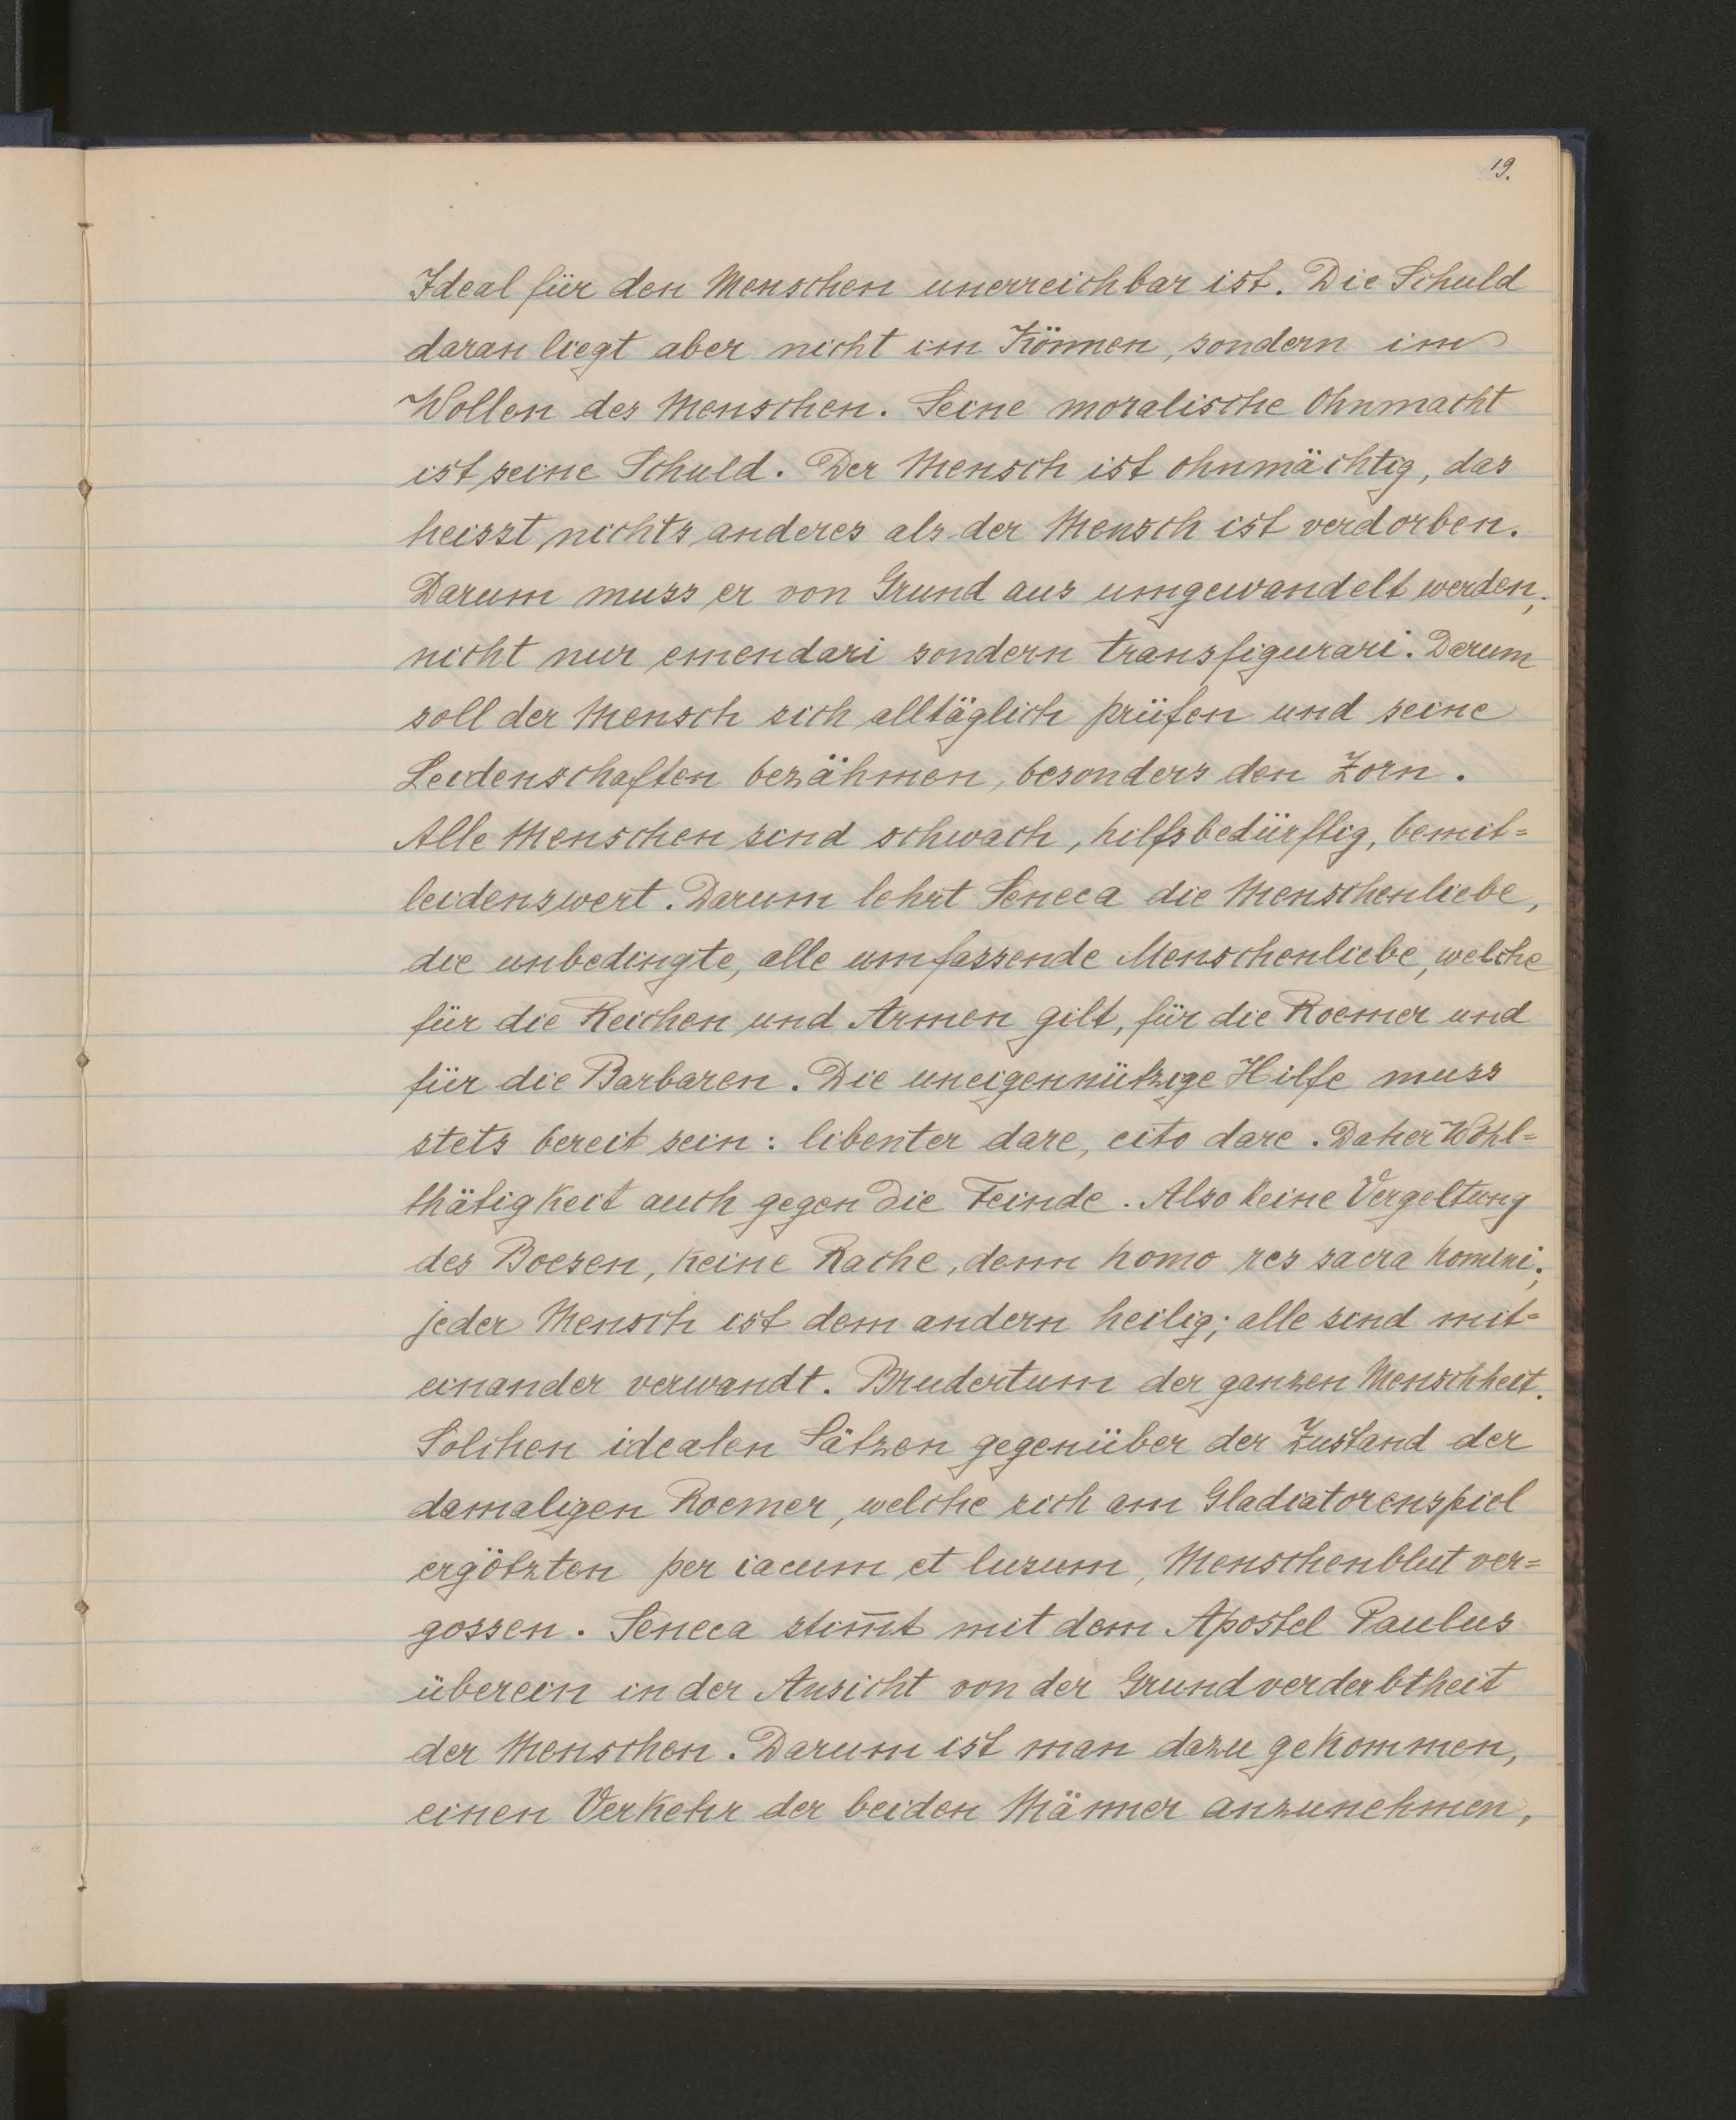 19.
Ideal für den Menschen unerreichbar ist. Die Schuld
daran liegt aber nicht im Können, sondern im
Wollen des Menschen. Seine moralische Ohnmacht
ist seine Schuld. Der Mensch ist ohnmächtig, das
heisst nichts anderes als der Mensch ist verdorben.
Darum muss er von Grund aus umgewandelt werden;
nicht nur emendari sondern transfigurari. Darum
soll der Mensch sich alltäglich prüfen und seine
Leidenschaften bezähmen, besonders den Zorn.
Alle Menschen sind schwach, hilfsbedürftig, bemit=
leidenswert. Darum lehrt Seneca die Menschenliebe,
die unbedingte, alle umfassende Menschenliebe, welche
für die Reichen und Armen gilt, für die Roemer und
für die Barbaren. Die uneigennützige Hilfe muss
stets bereit sein: libenter dare, cito dare. Daher Wohl=
thätigkeit auch gegen die Feinde. Also keine Vergeltung
des Boesen, keine Rache, denn homo res sacra homini;
jeder Mensch ist dem andern heilig; alle sind mit=
einander verwandt. Brudertum der ganzen Menschheit.
Solchen idealen Sätzen gegenüber der Zustand der
damaligen Roemer, welche sich am Gladiatorenspiel
ergötzten per iacum et lusum, Menschenblut ver=
gossen. Seneca stim̄t mit dem Apostel Paulus
überein in der Ansicht von der Grundverderbtheit
der Menschen. Darum ist man dazu gekommen,
einen Verkehr der beiden Männer anzunehmen,